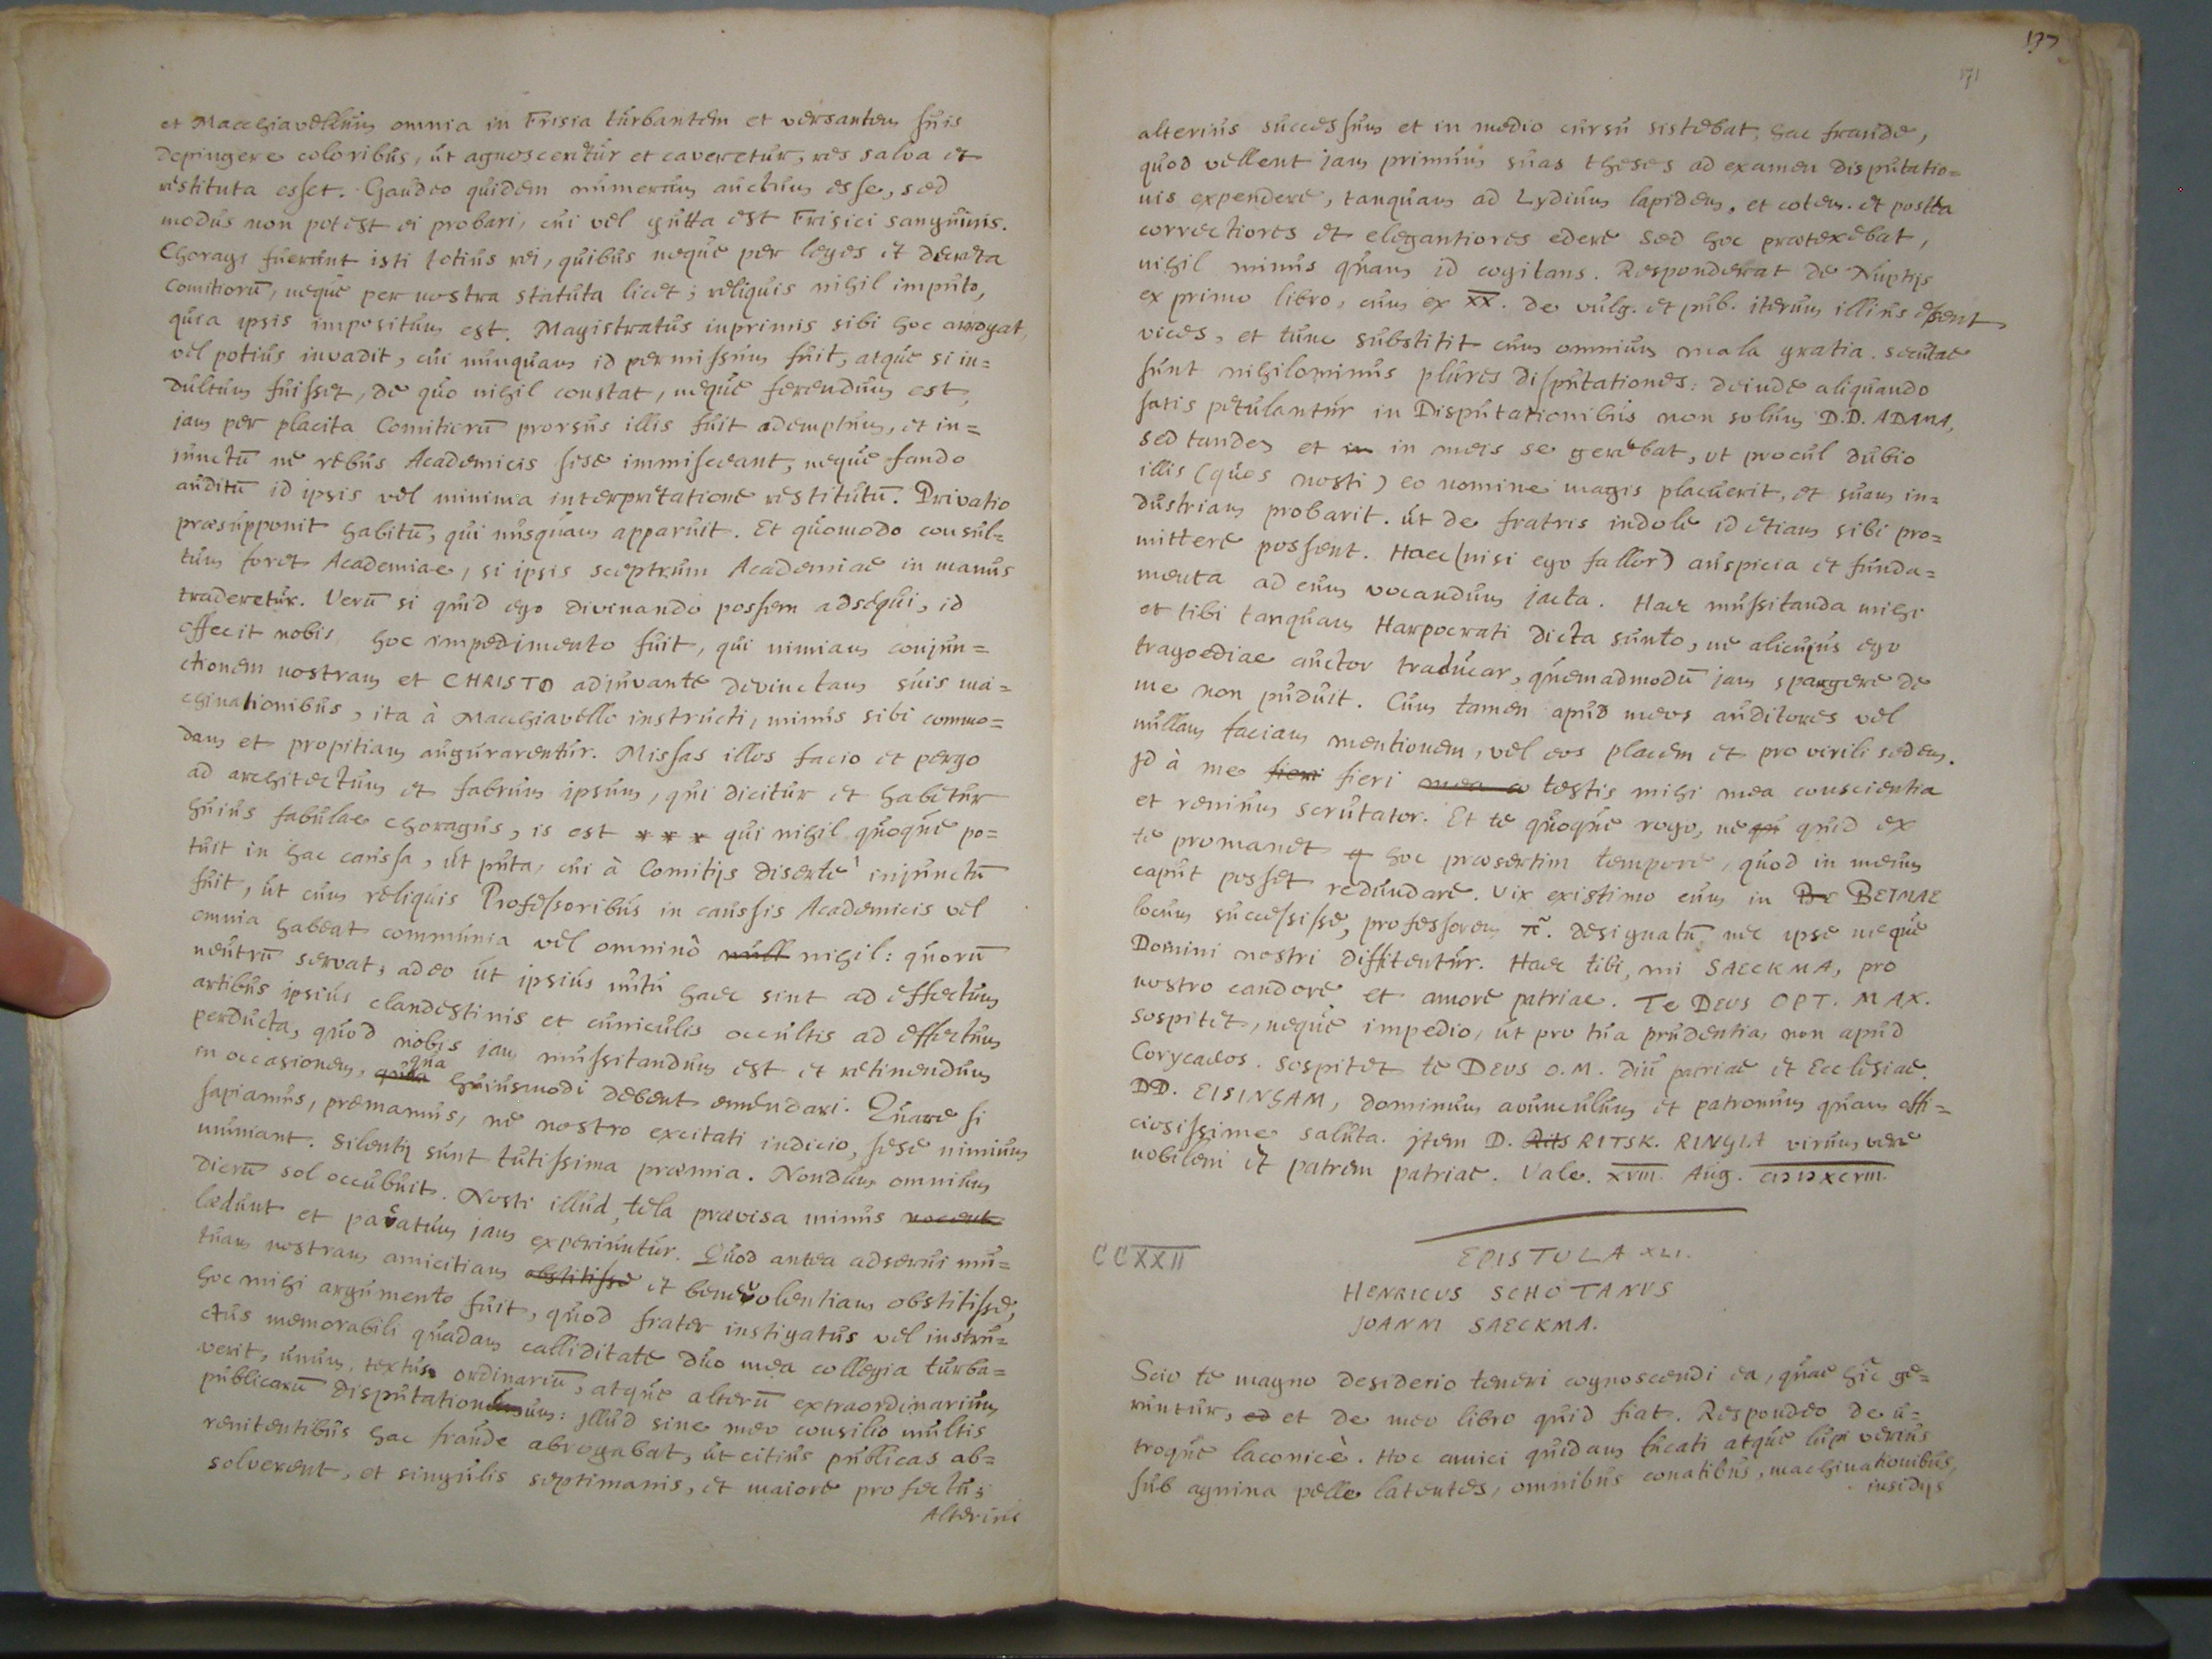 et Macchiavellum omnia in Frisia turbantem et versantem suis
depingere coloribus, ut agnosceretur et caveretur, res salva et
restituta esset. Gaudeo quidem numerum auctum esse, sed
modus non potest ei probari, cui vel gutta est Frisici sanguinis.
Choragi fuerunt isti totius rei, quibus neque per leges et decreta
Comitiorū, neque per nostra statuta licet; reliquis nihil imputo,
quia ipsis impositum est. Magistratus inprimis sibi hoc arrogat,
vel potius invadit, cui nunquam id permissum fuit, atque si in=
dultum fuisset, de quo nihil constat, neque ferendum est,
jam per placita Comitiorū prorsus illis fuit ademptum, et in=
junctū ne rebus Academicis sese immisceant, neque fando
auditū id ipsis vel minima interpretatione restitutū. Privatio
præsupponit habitū, qui nusquam apparuit. Et quomodo consul=
tum foret Academiae, si ipsis sceptrum Academiae in manus
traderetur. Verū si quid ego divinando possem adsequi, id
effecit nobis hoc impedimento fuit, qui nimiam conjun=
ctionem nostram et CHRISTO adjuvante devinctam suis ma=
chinationibus, ita à Macchiavello instructi, minus sibi commo=
dam et propitiam augurarentur. Missas illos facio et pergo
ad architectum et fabrum ipsum, qui dicitur et habetur
hujus fabulae choragus, is est * * * qui nihil quoque po=
tuit in hac caussa, ut puta, cui à Comitijs disertè injunctū
fuit, ut cum reliquis Professoribus in caussis Academicis vel
omnia habeat communia vel omninò null nihil: quorū
neutrū servat, adeo ut ipsius nutu haec sint ad effectum
artibus ipsius clandestinis et cuniculis occultis ad effectum
perducta, quod nobis jam mussitandum est et retinendum
in occasionem, quia qua hujusmodi debent emendari. Quare si
sapiamus, premamus, ne nostro excitati indicio, sese nimium
muniant. Silentij sunt tutissima præmia. Nondum omnium
dierū sol occubuit. Nosti illud, tela prævisa minus nocent
lædunt et paratum jam experiuntur. Quod antea adserui mu=
tuam nostram amicitiam obstitisse et benevolentiam obstitisse,
hoc mihi argumento fuit, quod frater instigatus vel instru=
ctus memorabili quadam calliditate duo mea collegia turba=
verit, unum, textus ordinariū, atque alterū extraordinarium
publicarū disputationum: Illud sine meo consilio multis
renitentibus hac fraude abrogabat, ut citius publicas ab=
solverent, et singulis septimanis, et maiore profectu;
Alterius
137
171
alterius successum et in medio cursu sistebat, hac fraude,
quod vellent jam primum suas theses ad examen disputatio=
nis expendere, tanquam ad Lydium lapidem, et cotem. et postea
correctiores et elegantiores edere sed hoc prætexebat,
nihil minus quam id cogitans. Responderat de Nuptijs
ex primo libro, cum ex XX. de vulg. et pub. iterum illius essent
vices, et tunc substitit cum omnium mala gratia. secutae
sunt nihilominus plures disputationes: deinde aliquando
satis petulantur in Disputationibus non solum D.D. ADAMA,
sed tandem et in in meis se gerebat, ut procul dubio
illis (quos nosti) eo nomine magis placuerit, et suam in=
dustriam probarit. ut de fratris indole id etiam sibi pro=
mittere possent. Haec (nisi ego fallor) auspicia et funda=
menta ad eum vocandum jacta. Haec mussitanda mihi
et tibi tanquam Harpocrati dicta sunto, ne alicujus ego
tragoediae auctor traducar, quemadmodū jam spargere de
me non puduit. Cum tamen apud meos auditores vel
nullam faciam mentionem, vel eos placem et pro virili sedem.
Id à me fieri fieri mea co testis mihi mea conscientia
et renium scrutator. Et te quoque rogo, ne qu quid ex
te promanet q hoc præsertim tempore, quod in meum
caput posset redundare. Vix existimo eum in Be BEIMAE
locum successisse, professorem π. designatū nec ipse neque
Domini nostri diffitentur. Haec tibi, mi SAECKMA, pro
nostro candore et amore patriae. Te DEUS OPT. MAX.
sospitet, neque impedio, ut pro tua prudentia, non apud
Corycaeos. Sospitet te DEUS O.M. diu patriae et Ecclesiae.
DD. EISINGAM, dominum avunculum et patronum quam offi=
ciosissime saluta. Item D. Rits RITSK. RINGIA virum vere
nobilem et patrem patriae. Vale. XVIII. Aug. CIↃIↃXCVIII.
CCXXII
EPISTULA XLI.
HENRICUS SCHOTANUS
JOANNI SAECKMA.
Scio te magno desiderio teneri cognoscendi ea, quae hîc ge=
runtur, ed et de meo libro quid fiat. Respondeo de u=
troque laconicè. Hoc amici quidam fucati atque lupi verius
sub agnina pelle latentes, omnibus conatibus, machinationibus,
insidijs